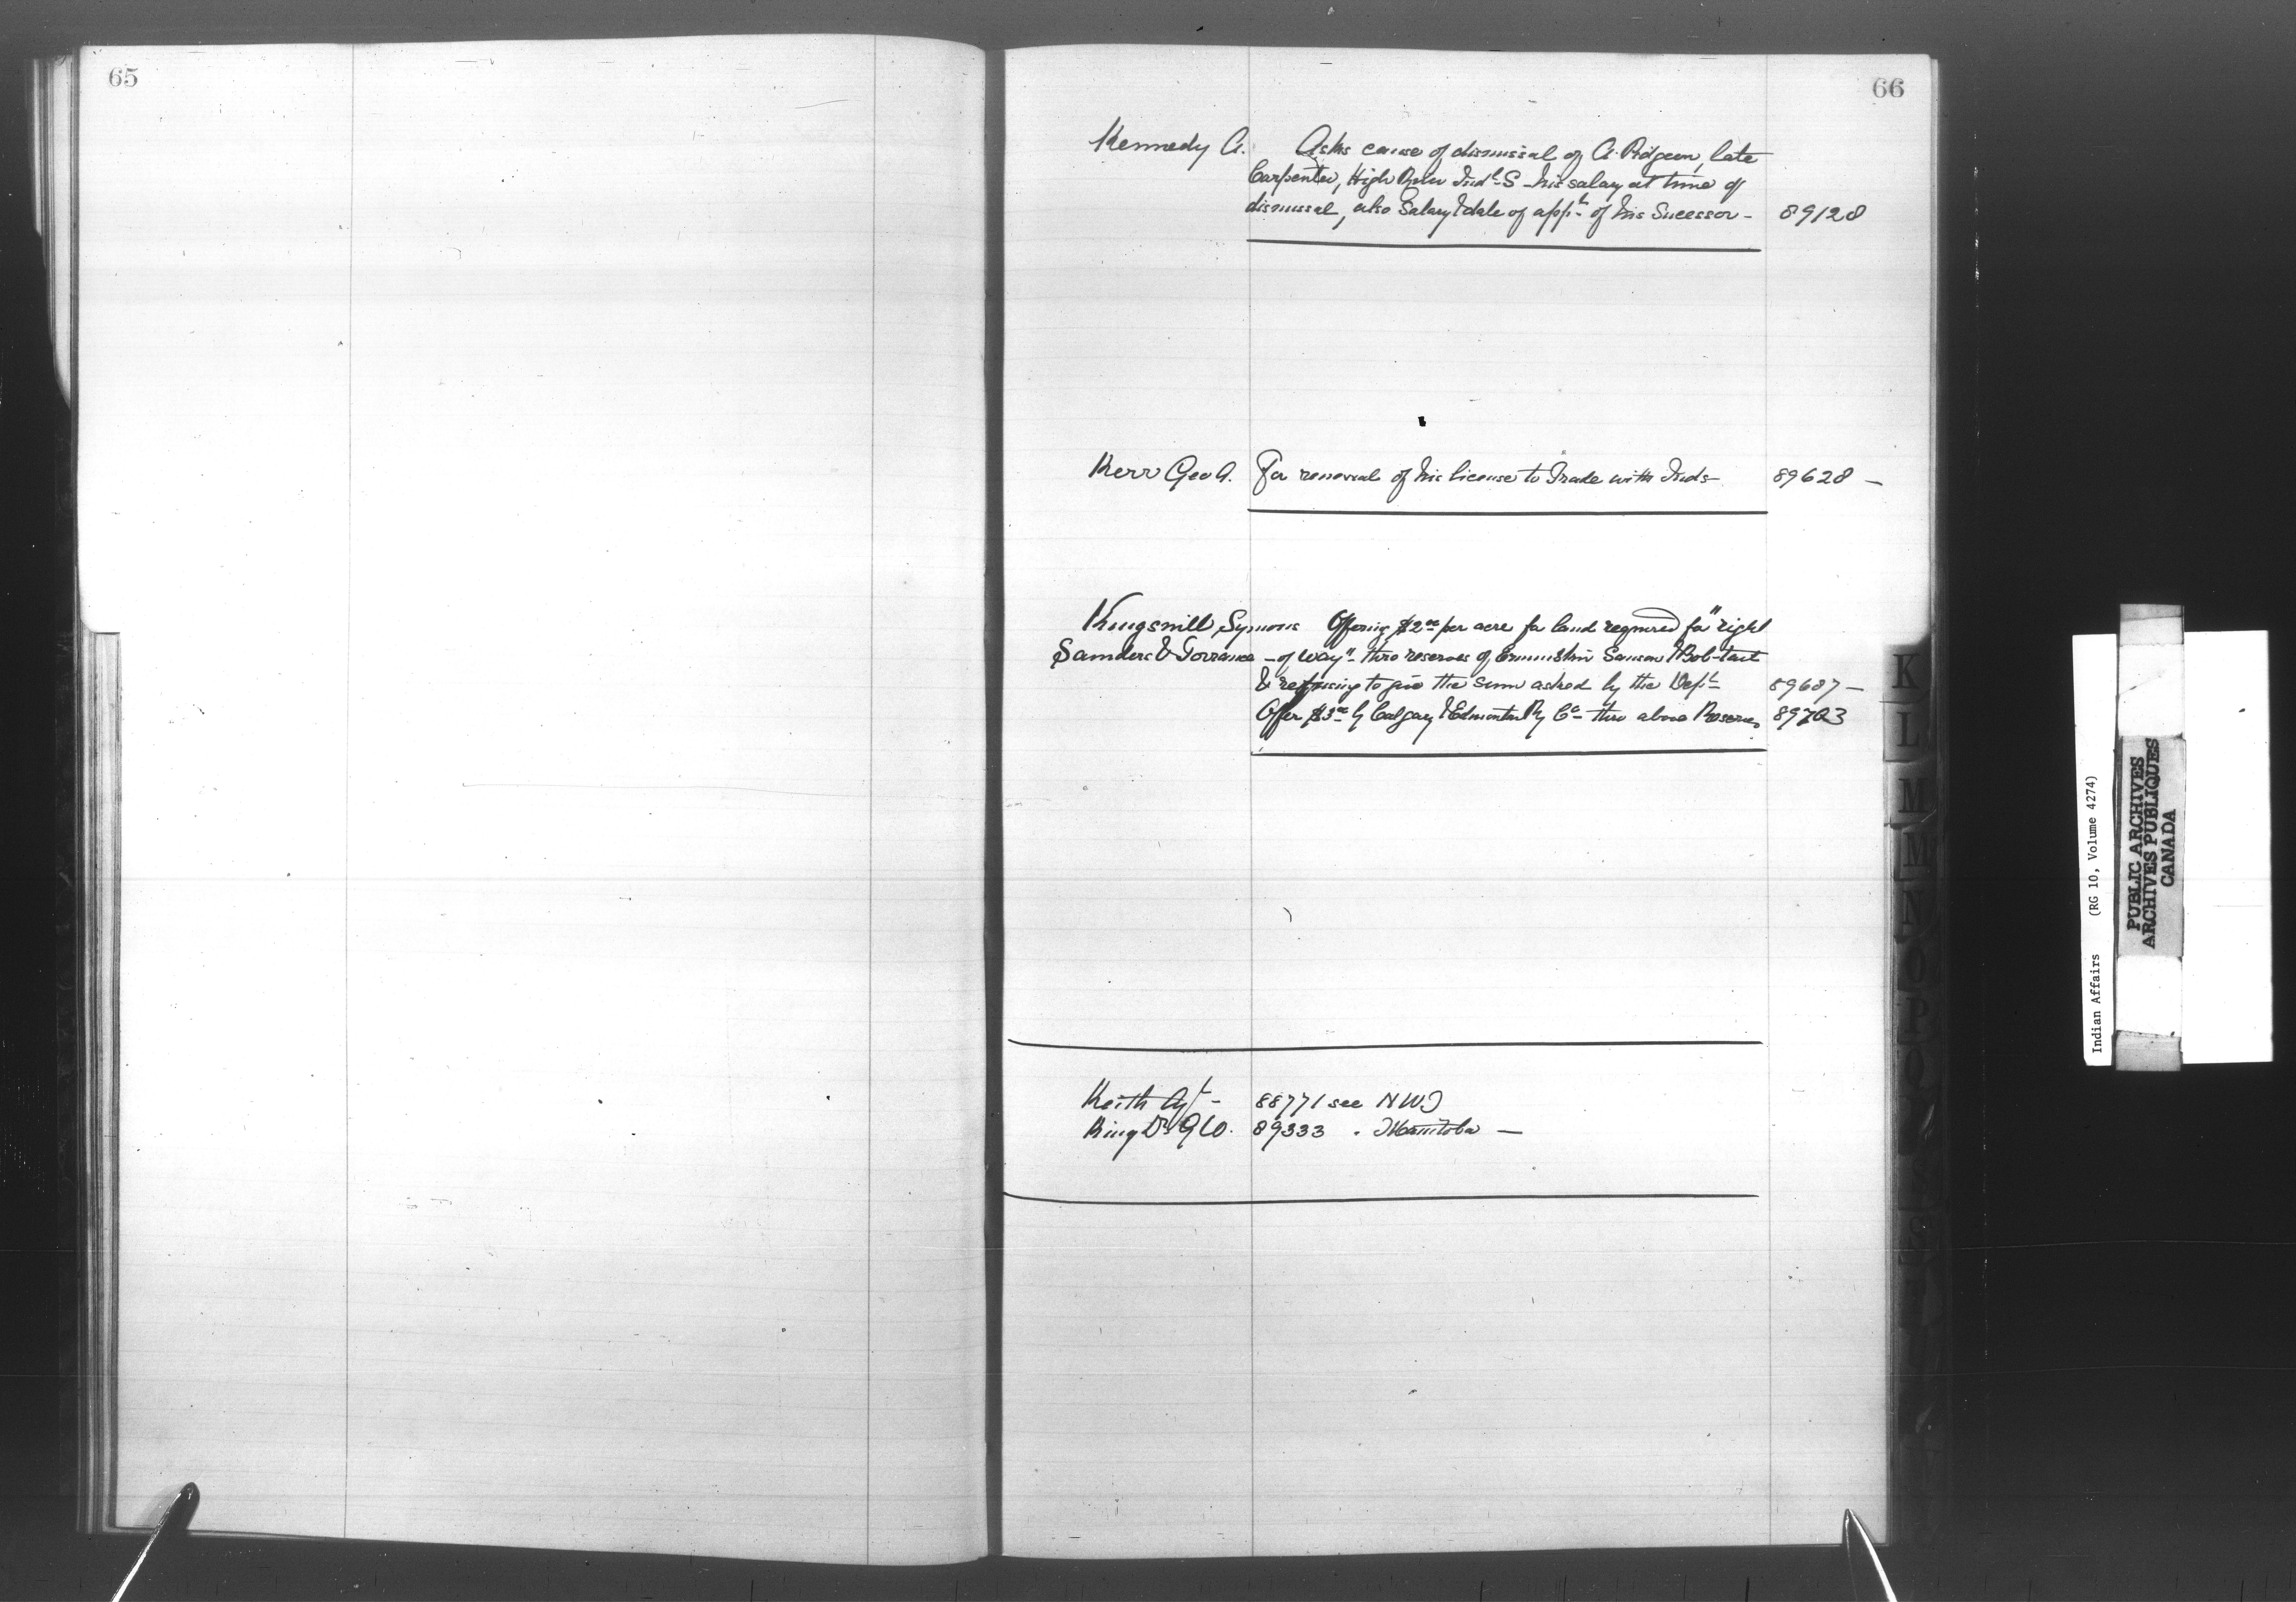 65
66
Kennedy A. Asks cause of dismissal of A. Pidgeon, late
Carpenter, High River Indl S - his salary at time of
dismissal, also Salary & date of appt of his Sucessor - 89128
Kerr Geo A. For renewal of his license to Trade with Inds - 89628 -
Kingsmill Symons Offering $2 00 per acre for land required for "right
Saunders & Torrance - of way" - thro reserves of Ermineskin Samson & Bob-tail
& refusing to give the sum asked by the Dept 89687 -
Offer $3 00 by Calgary & Edmonton Ry Co - thro above Reserves 89703
Keith Agt - 88771 see NWT
King Dr G W. 89333 . Manitoba -
K
L
M
M
N
O
P
Q
S
Indian Affairs (RG 10, Volume 4274)
PUBLIC ARCHIVES
ARCHIVES PUBLIQUES
CANADA